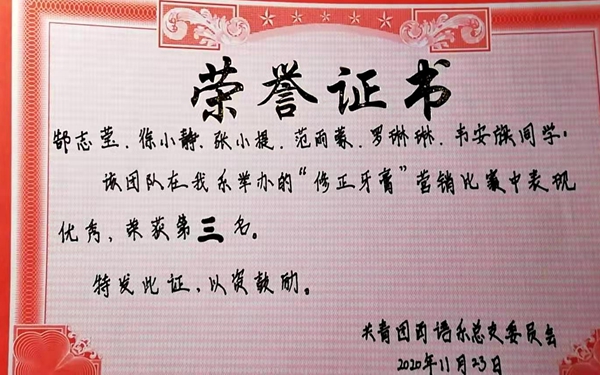 荣誉证书
郜志莹、徐小静、张小提、范雨蒙、罗琳琳、韦安旗同学:
该团队在我系举办的“修正牙膏”营销比赛中表现
优秀,荣获第三名。
特发此证,以资鼓励。
共青团西语系总支委员会
2020年11月23日